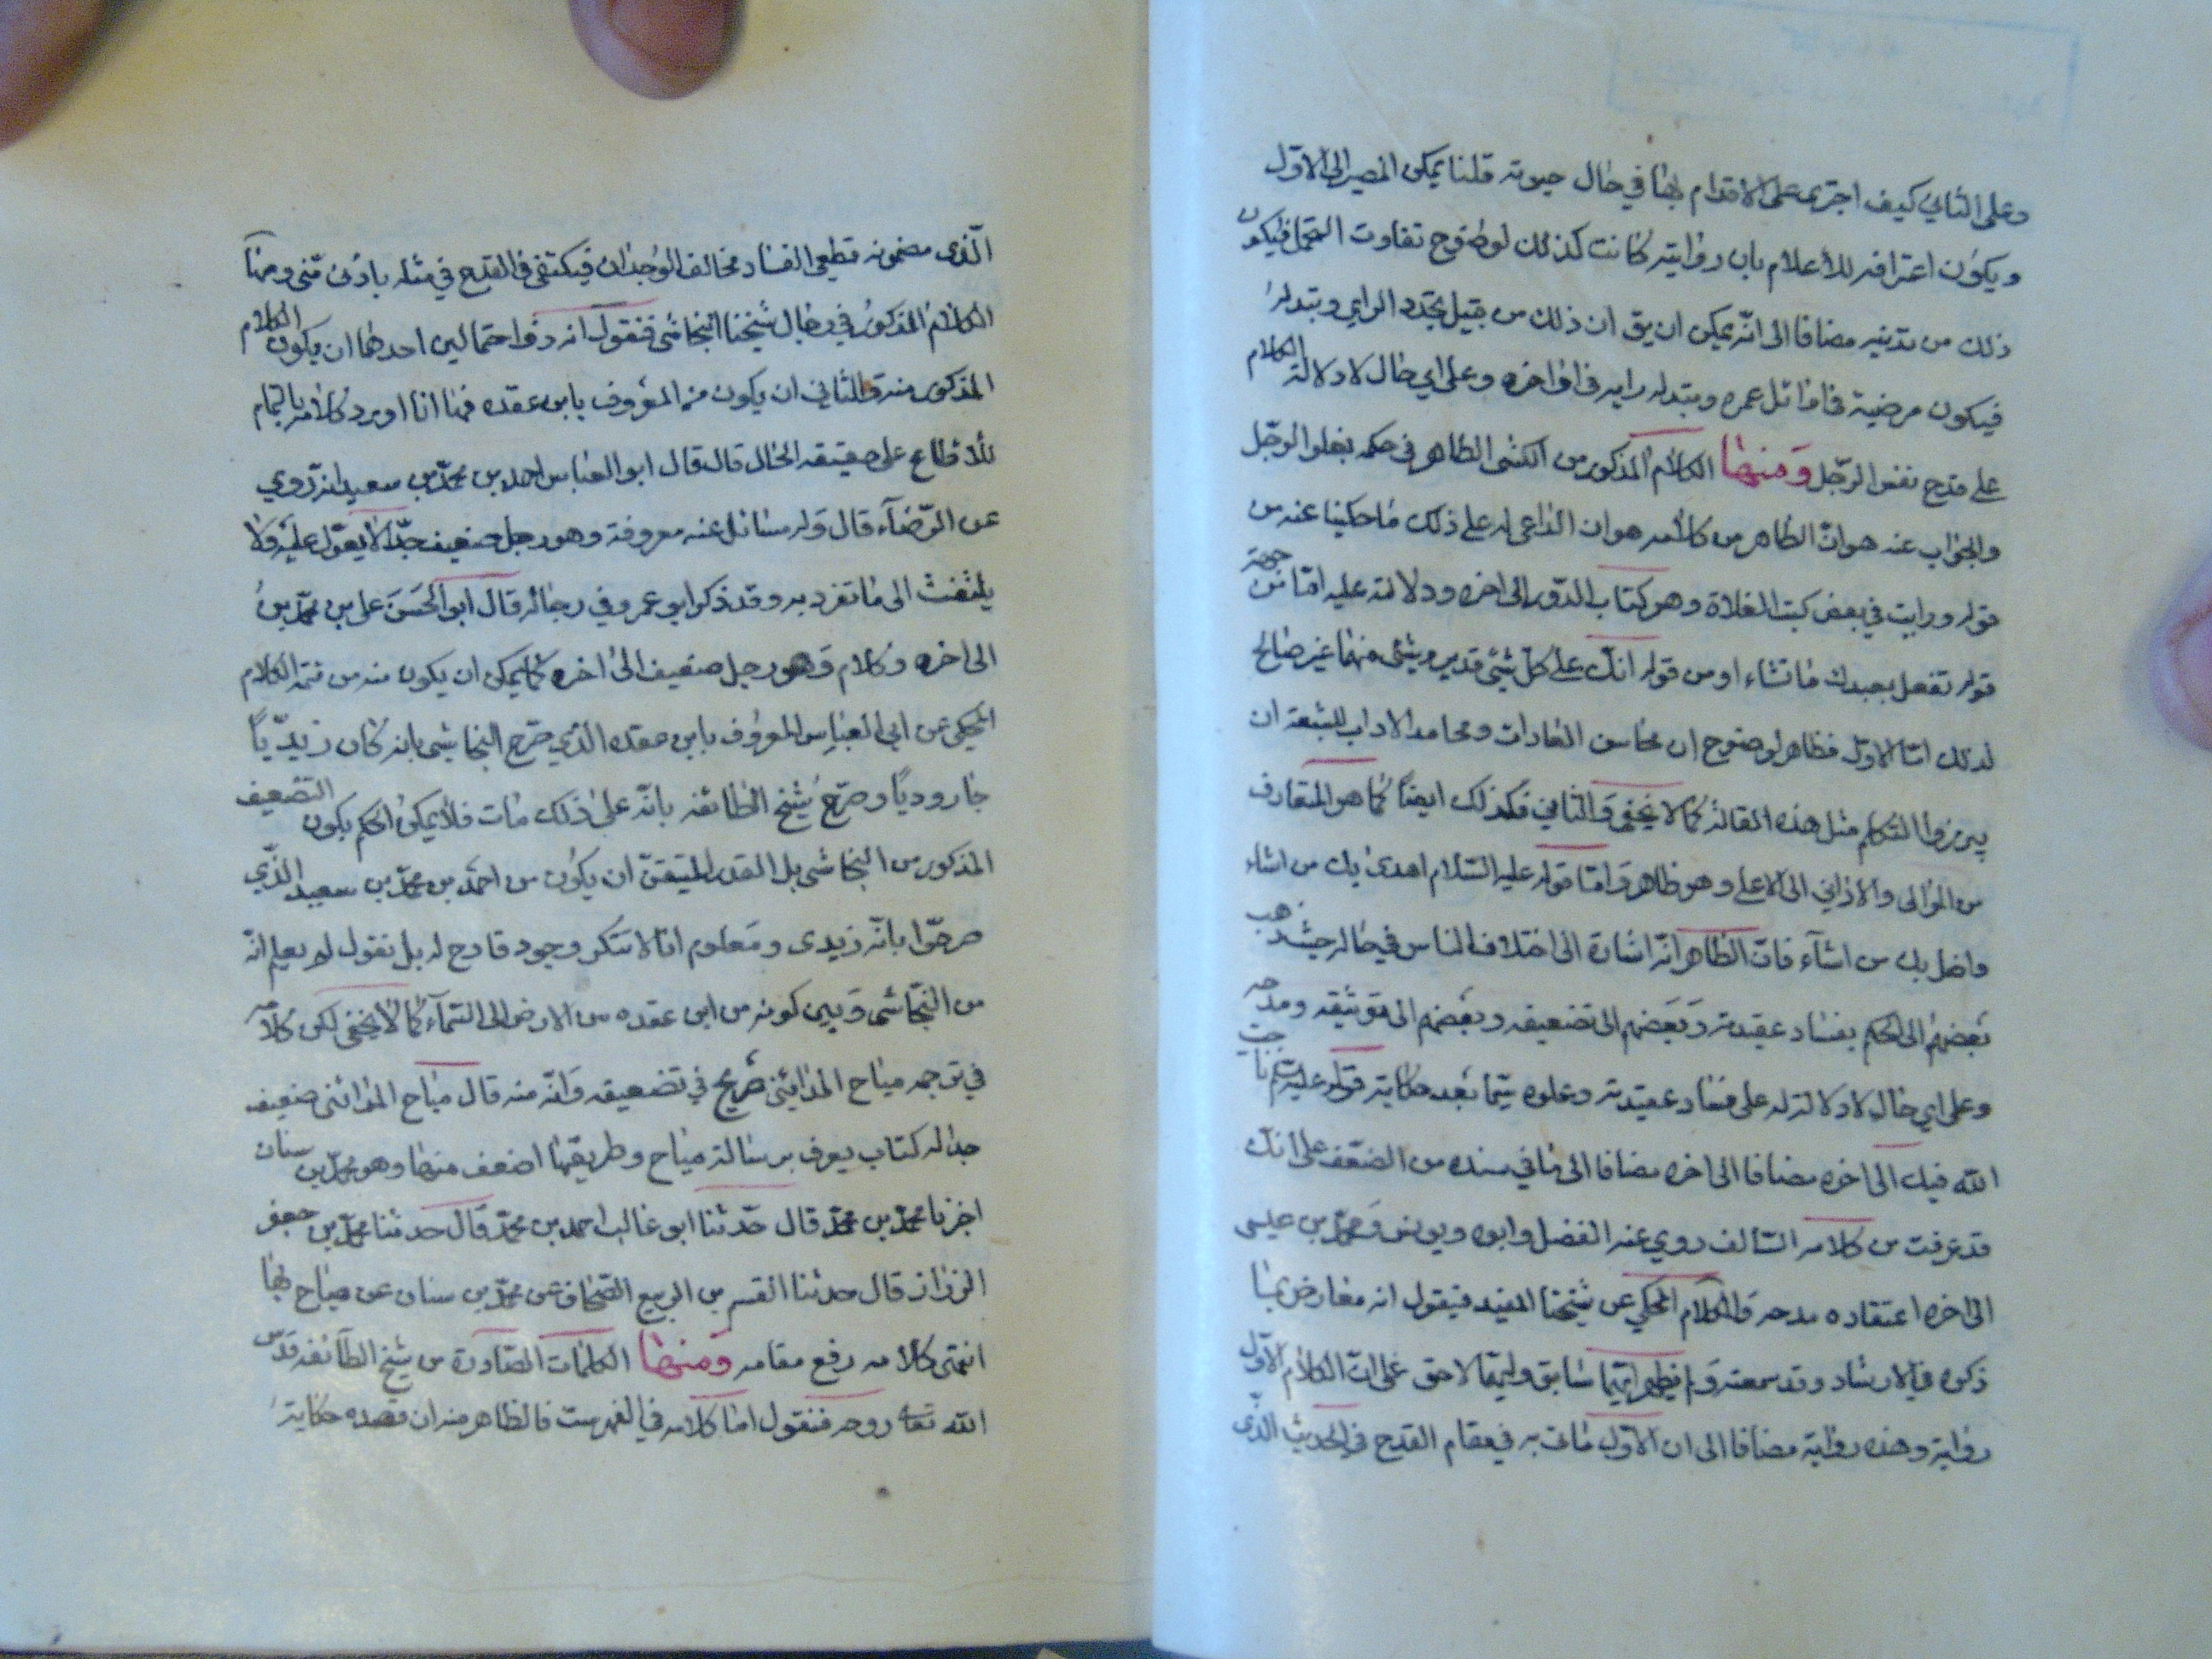 وعلى الثاني كيف اجترى على الاقدام بها في حال حيوته قلنا يمكن المصير الى الاول
ويكون اعترافه للاعلام بان روايته كانت كذلك لوضوح تفاوت التحمل فيكون
ذلك من تدينه مضافا الى انه يمكن ان يق ان ذلك من قبيل تجدد الراي وتبدله
فيكون مرضية في اوائل عمره وتبدله رايه في اواخره وعلى اي حال لا دلالة الكلام
على قدح نفس الرجل ومنها الكلام المذكور من الكشى الظاهر في حكمه بغلو الرجل
والجواب عنه هو ان الظاهر من كلامه هو ان الداعي له على ذلك ما حكينا عنه من
قوله ورايت في بعض كتب الغلاة وهو كتاب الدور الى اخره ودلالته عليه اما من جهة
قوله تفعل بعبدك ما تشاء او من قوله انك على كل شيئ قدير وشيئ منهما غير صالح
لذلك اما الاول فظاهر لوضوح ان محاسن العادات ومحامد الاداب للشيعة ان
يبرزوا التكلم مثل هذه المقالة كما لا يخفى والثاني فكذلك ايضا كما هو المتعارف
من الموالى والاداني الى الاعلى وهو ظاهر واما قوله عليه السلام اهدى بك من اشاء
واضل بك من اشآء فان الظاهر انه اشارة الى اختلاف الناس في حاله حيث ذهب
بعضهم الى الحكم بفساد عقيدته وبعضهم الى تضعيفه وبعضهم الى توثيقه ومدحه
وعلى اي حال لا دلالة له على فساد عقيدته وعلوه سيما بعد حكاية قوله عليه السلم ناجيت
الله فيك الى اخره مضافا الى اخره مضافا الى ما في سنده من الضعف على انك
قد عرفت من كلامه السالف روي عنه الفضل وابوه ويونس ومحمد بن عيسى
الى اخره اعتقاده مدحه والكلام المحكي عن شيخنا المفيد فيقول انه معارض بما
ذكره في الارشاد وقد سمعته ولم يظهر ايهما سابق وايهما لاحق على ان الكلام الاول
رواية وهذه رواية مضافا الى ان الاول مات به في مقام القدح في الحديث الذى
الذى مضمونه قطعي الفساد مخالف الوجدان فيكتفى في القدح في مثله بادنى شئ ومنها
الكلام المذكور في رجال شيخنا النجاشى فنقول انه ذو احتمالين احدهما ان يكون الكلام
المذكور منه والثاني ان يكون من المعروف بابن عقده فها انا اورد كلامه بالتمام
للاطلاع على حقيقة الحال قال قال ابو العباس احمد بن محمد بن سعيد انه روي
عن الرضآء قال وله مسائل عنه معروفة وهو رجل ضعيف جدا لا يعول عليه ولا
يلتفت الى ما تفرد به وقد ذكر ابو عمرو في رجاله قال ابو الحسن علي بن محمد بن
الى اخره وكلام وهو رجل ضعيف الى اخره كما يمكن ان يكون منه من تتمة الكلام
المحكي عن ابي العباس المعروف بابن عقده الذي صرح النجاشى بانه كان زيديا
جاروديا وصرح شيخ الطائفه بانه على ذلك مات فلا يمكن الحكم بكون التضعيف
المذكور من النجاشى بل القدر المتيقن ان يكون من احمد بن محمد بن سعيد الذي
صرحوا بانه زيدى ومعلوم انا لا ننكر وجود قادح له بل نقول لم يعلم انه
من النجاشى وبين كونه من ابن عقده من الارض الى السمآء كما لا يخفى لكن كلامه
في ترجمه مياح المدائني صريح في تضعيفه وانه منه قال مياح المدائنى ضعيف
جدا له كتاب يعرف برسالة مياح وطريقها اضعف منها وهو محمد بن سنان
اخبرنا محمد بن محمد قال حدثنا ابو غالب احمد بن محمد قال حدثنا محمد بن جعفر
الرزاز قال حدثنا القسم بن الربيع الصحاف عن محمد بن سنان عن مياح بها
انتهى كلامه رفع مقامه ومنها الكلمات الصادرة من شيخ الطائفه قدس
الله تعا روحه فنقول اما كلامه في الفهرست فالظاهر منه ان قصده حكاية